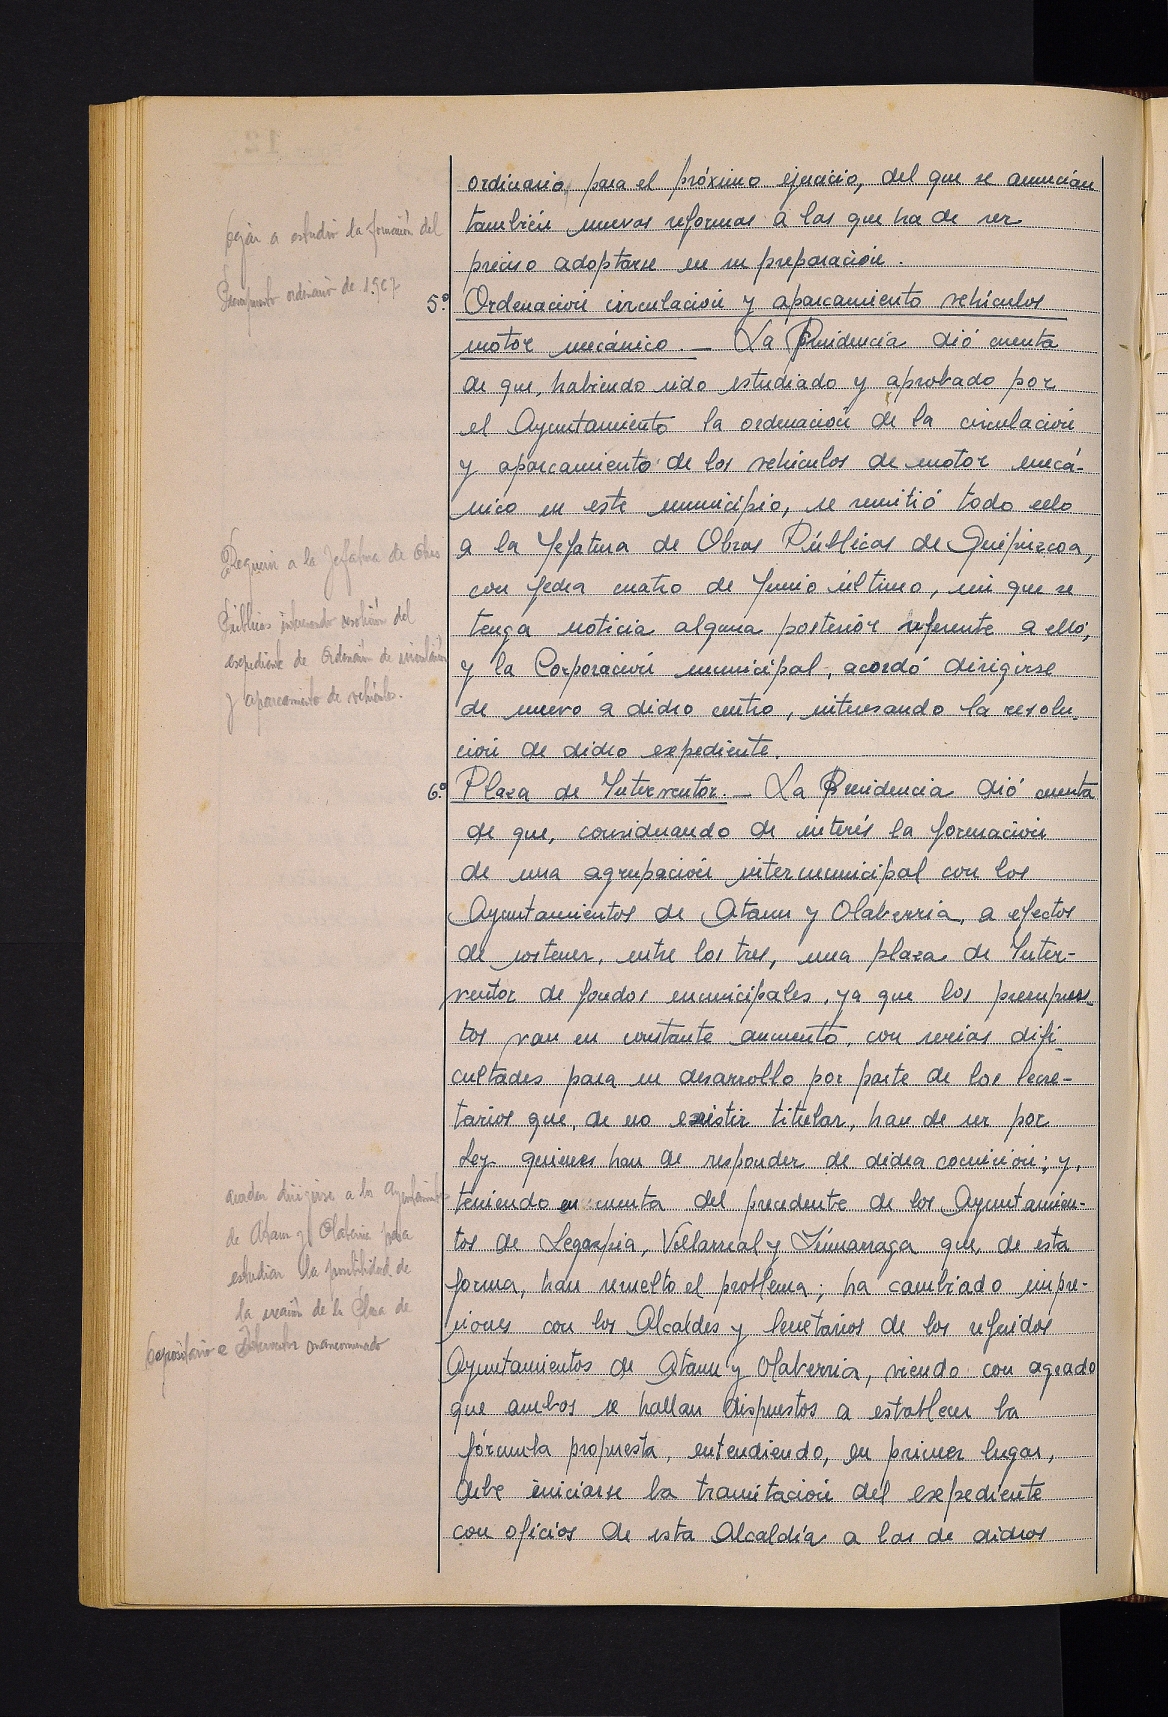 ordinario, para el próximo ejercicio, del que se anuncian
también nuevas reformas a las que ha de ser
preciso adoptarse en su preparación.
a estudio la formación del
Presupuesto ordinario de 1967
5º Ordenación circulación y aparcamiento vehículos
motor mecánico.— La Presidencia dió cuenta
de que, habiendo sido estudiado y aprobado por
el Ayuntamiento la ordenación de la circulación
y aparcamiento de los vehículos de motor mecá-
nico en este municipio, se remitió todo ello
a la Jefatura de Obras Públicas de Guipúzcoa,
con fecha cuatro de Junio último, sin que se
tenga noticia alguna posterior referente a ello,
y la Corporación municipal, acordó dirigirse
de nuevo a dicho centro, interesando la resolu-
ción de dicho expediente.
Requerir a la Jefatura de Obras
Públicas interesando resolución del
expediente de Ordenación de circulación
y aparcamiento de vehículos.
6º Plaza de Interventor.— La Presidencia dió cuenta
de que, considerando de interés la formación
de una agrupación intermunicipal con los
Ayuntamientos de Ataun y Olaberria, a efectos
de sostener, entre los tres, una plaza de Inter-
ventor de fondos municipales, ya que los presupues-
tos van en constante aumento, con serias difi-
cultades para su desarrollo por parte de los Secre-
tarios que, de no existir titular, han de ser por
Ley quienes han de responder de dicha comición; y,
teniendo en cuenta del precedente de los Ayuntamien-
tos de Legazpia, Villarreal y Zúmarraga que, de esta
forma, han resuelto el problema; ha cambiado impre-
siones con los Alcaldes y Secretarios de los referidos
Ayuntamientos de Ataun y Olaberria, viendo con agrado
que ambos se hallan dispuestos a establecer la
fórmula propuesta, entendiendo, en primer lugar,
debe iniciarse la tramitación del expediente
con oficios de esta Alcaldía a las de dichos
acordar dirigirse a los Ayuntamientos
de Ataun y Olaberria para
estudiar la posibilidad de
la creación de la Plaza de
Depositario e Interventor mancomunado